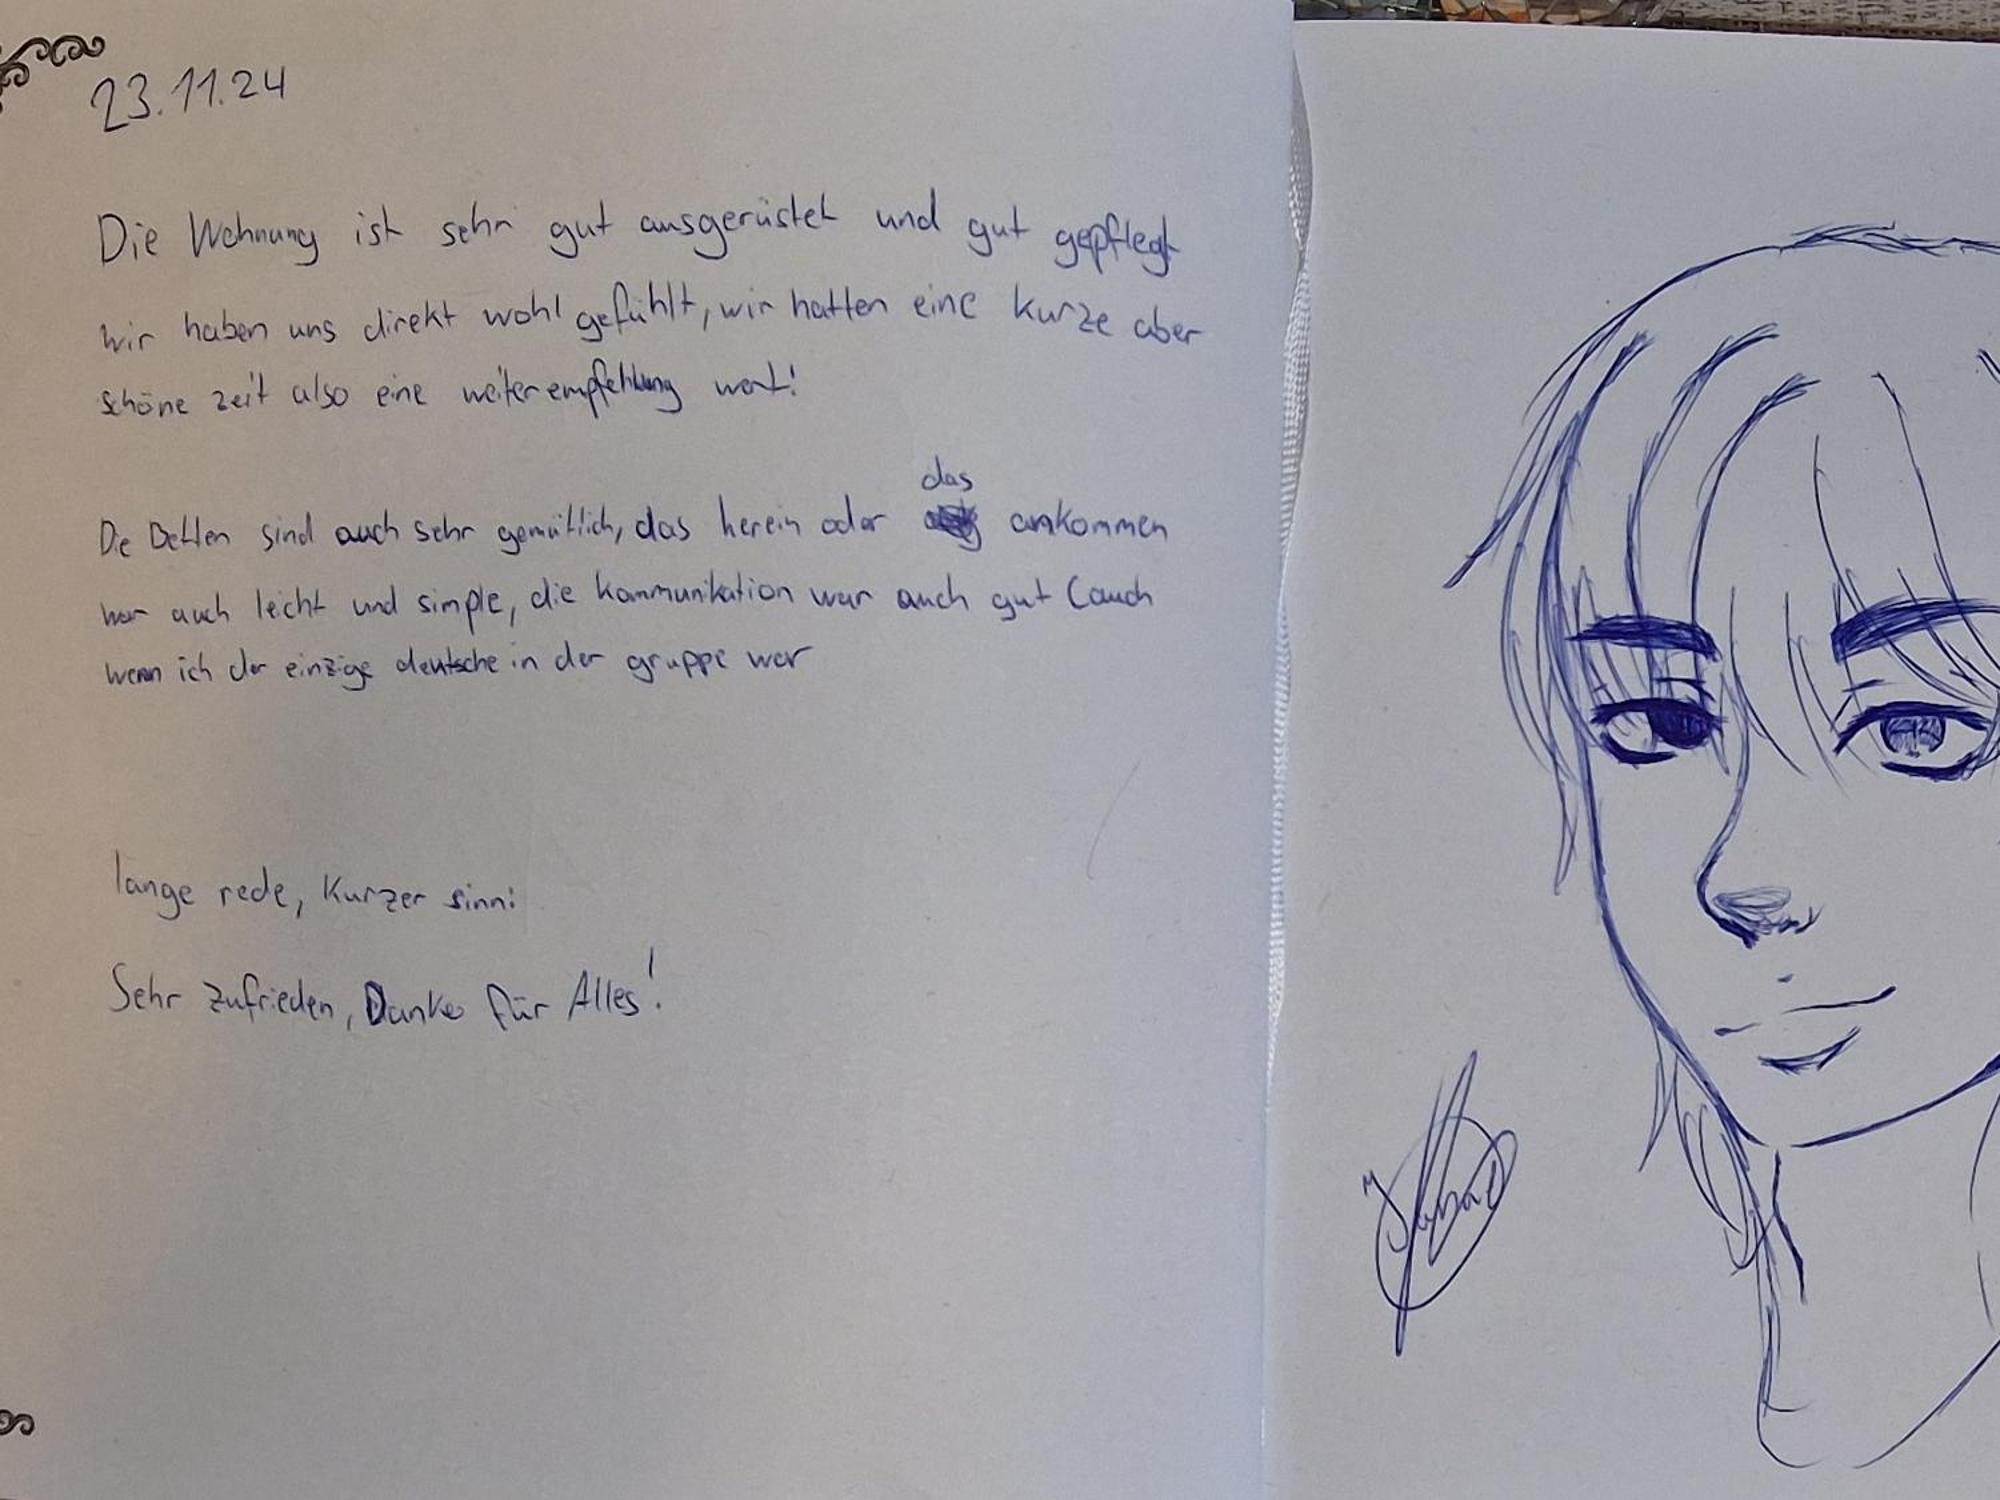 23.11.24
Die Wohnung ist sehr gut ausgerüstet und gut gepflegt
wir haben uns direkt wohl gefühlt, wir hatten eine kurze aber
schöne zeit also eine weiterempfehlung wert!
das
Die Betten sind auch sehr gemütlich, das herein oder ankommen
war auch leicht und simple, die kommunikation war auch gut (auch
wenn ich der einzige deutsche in der gruppe war
lange rede, kurzer sinn:
Sehr zufrieden, Danke für Alles!